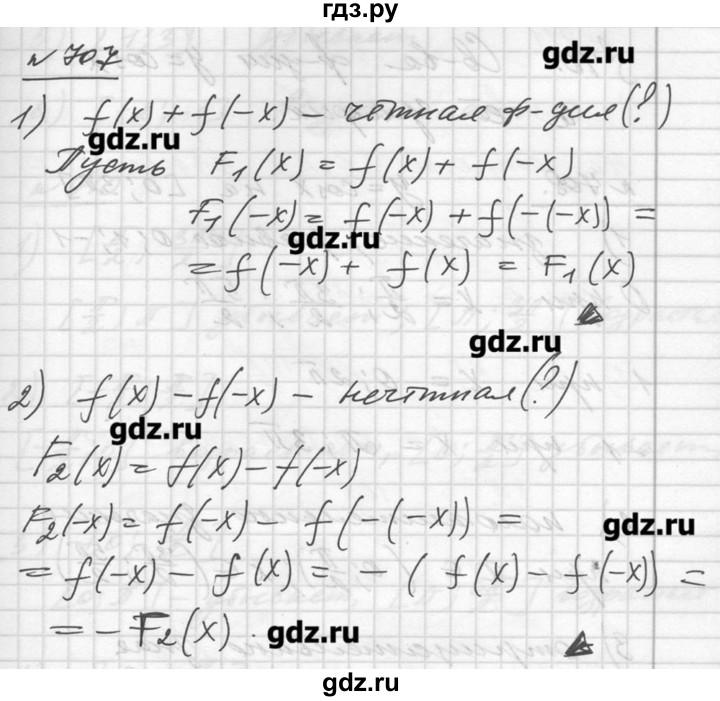 гдз.ру
№ 707
gdz.ru
1) f(x) + f(-x) - чётная ф-ция (?)
gdz.ru
Пусть F₁(x) = f(x) + f(-x)
F₁(-x) = f(-x) + f(-(-x)) =
gdz.ru
= f(-x) + f(x) = F₁(x)
gdz.ru
2) f(x) - f(-x) - нечётная (?)
gdz.ru
F₂(x) = f(x) - f(-x)
F₂(-x) = f(-x) - f(-(-x)) =
gdz.ru
= f(-x) - f(x) = - (f(x) - f(-x)) =
= - F₂(x).
gdz.ru
gdz.ru